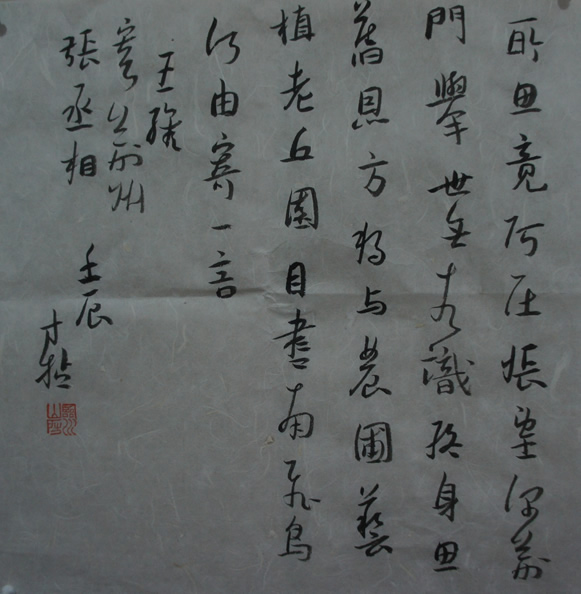 所思竟何在悵望深荊
門舉世無相識終身思
舊恩方將與農圃藝
植老丘園目盡南飛鳥
何由寄一言
王維
寄荊州
張丞相
壬辰
才